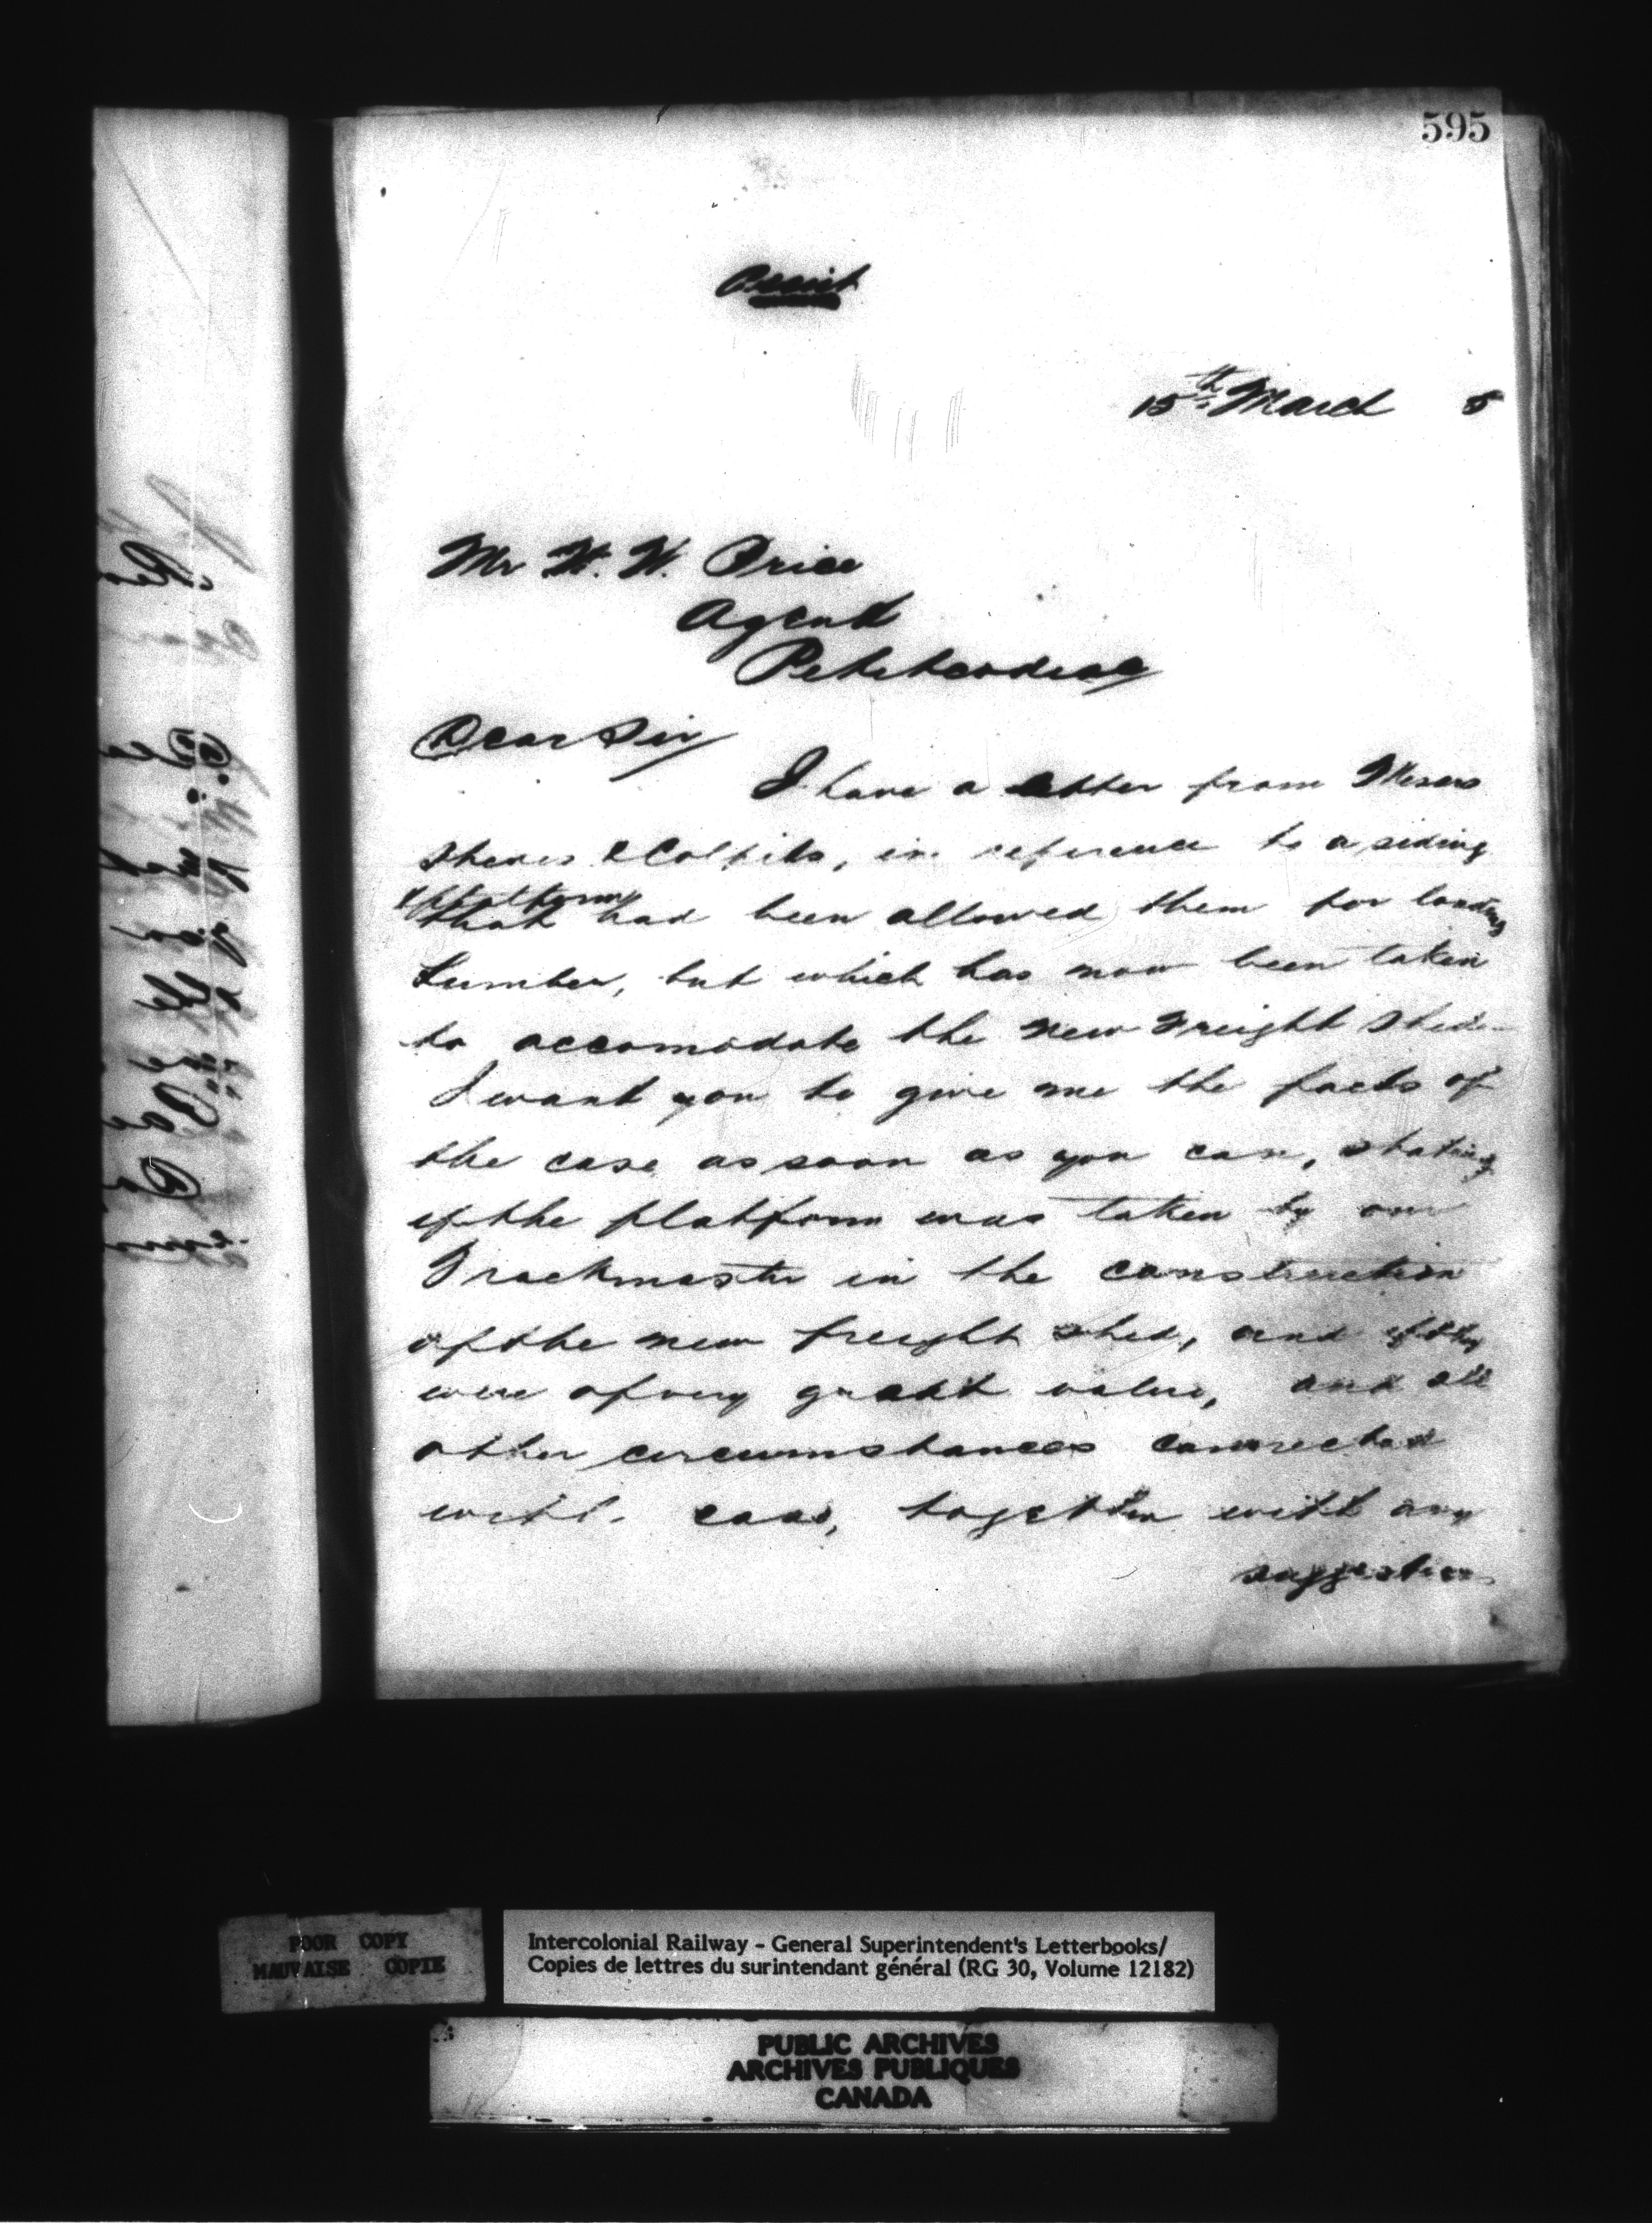 595
Assist
15th March 5
Mr W. W. Price
Agent
Petitcodiac
Dear Sir
I have a letter from Messrs
Steves & Colpitts, in reference to a siding
& platform
that had been allowed them for loading
Lumber, but which has now been taken
to accomodate the New Freight Shed.
I want you to give me the facts of
the case as soon as you can, stating
if the platform was taken by our
Trackmaster in the construction
of the new freight shed, and if they
were of very great value, and all
other circumstances connected
with case, together with any
suggestions
POOR COPY
MAUVAISE COPIE
Intercolonial Railway - General Superintendent's Letterbooks/
Copies de lettres du surintendant général (RG 30, Volume 12182)
PUBLIC ARCHIVES
ARCHIVES PUBLIQUES
CANADA